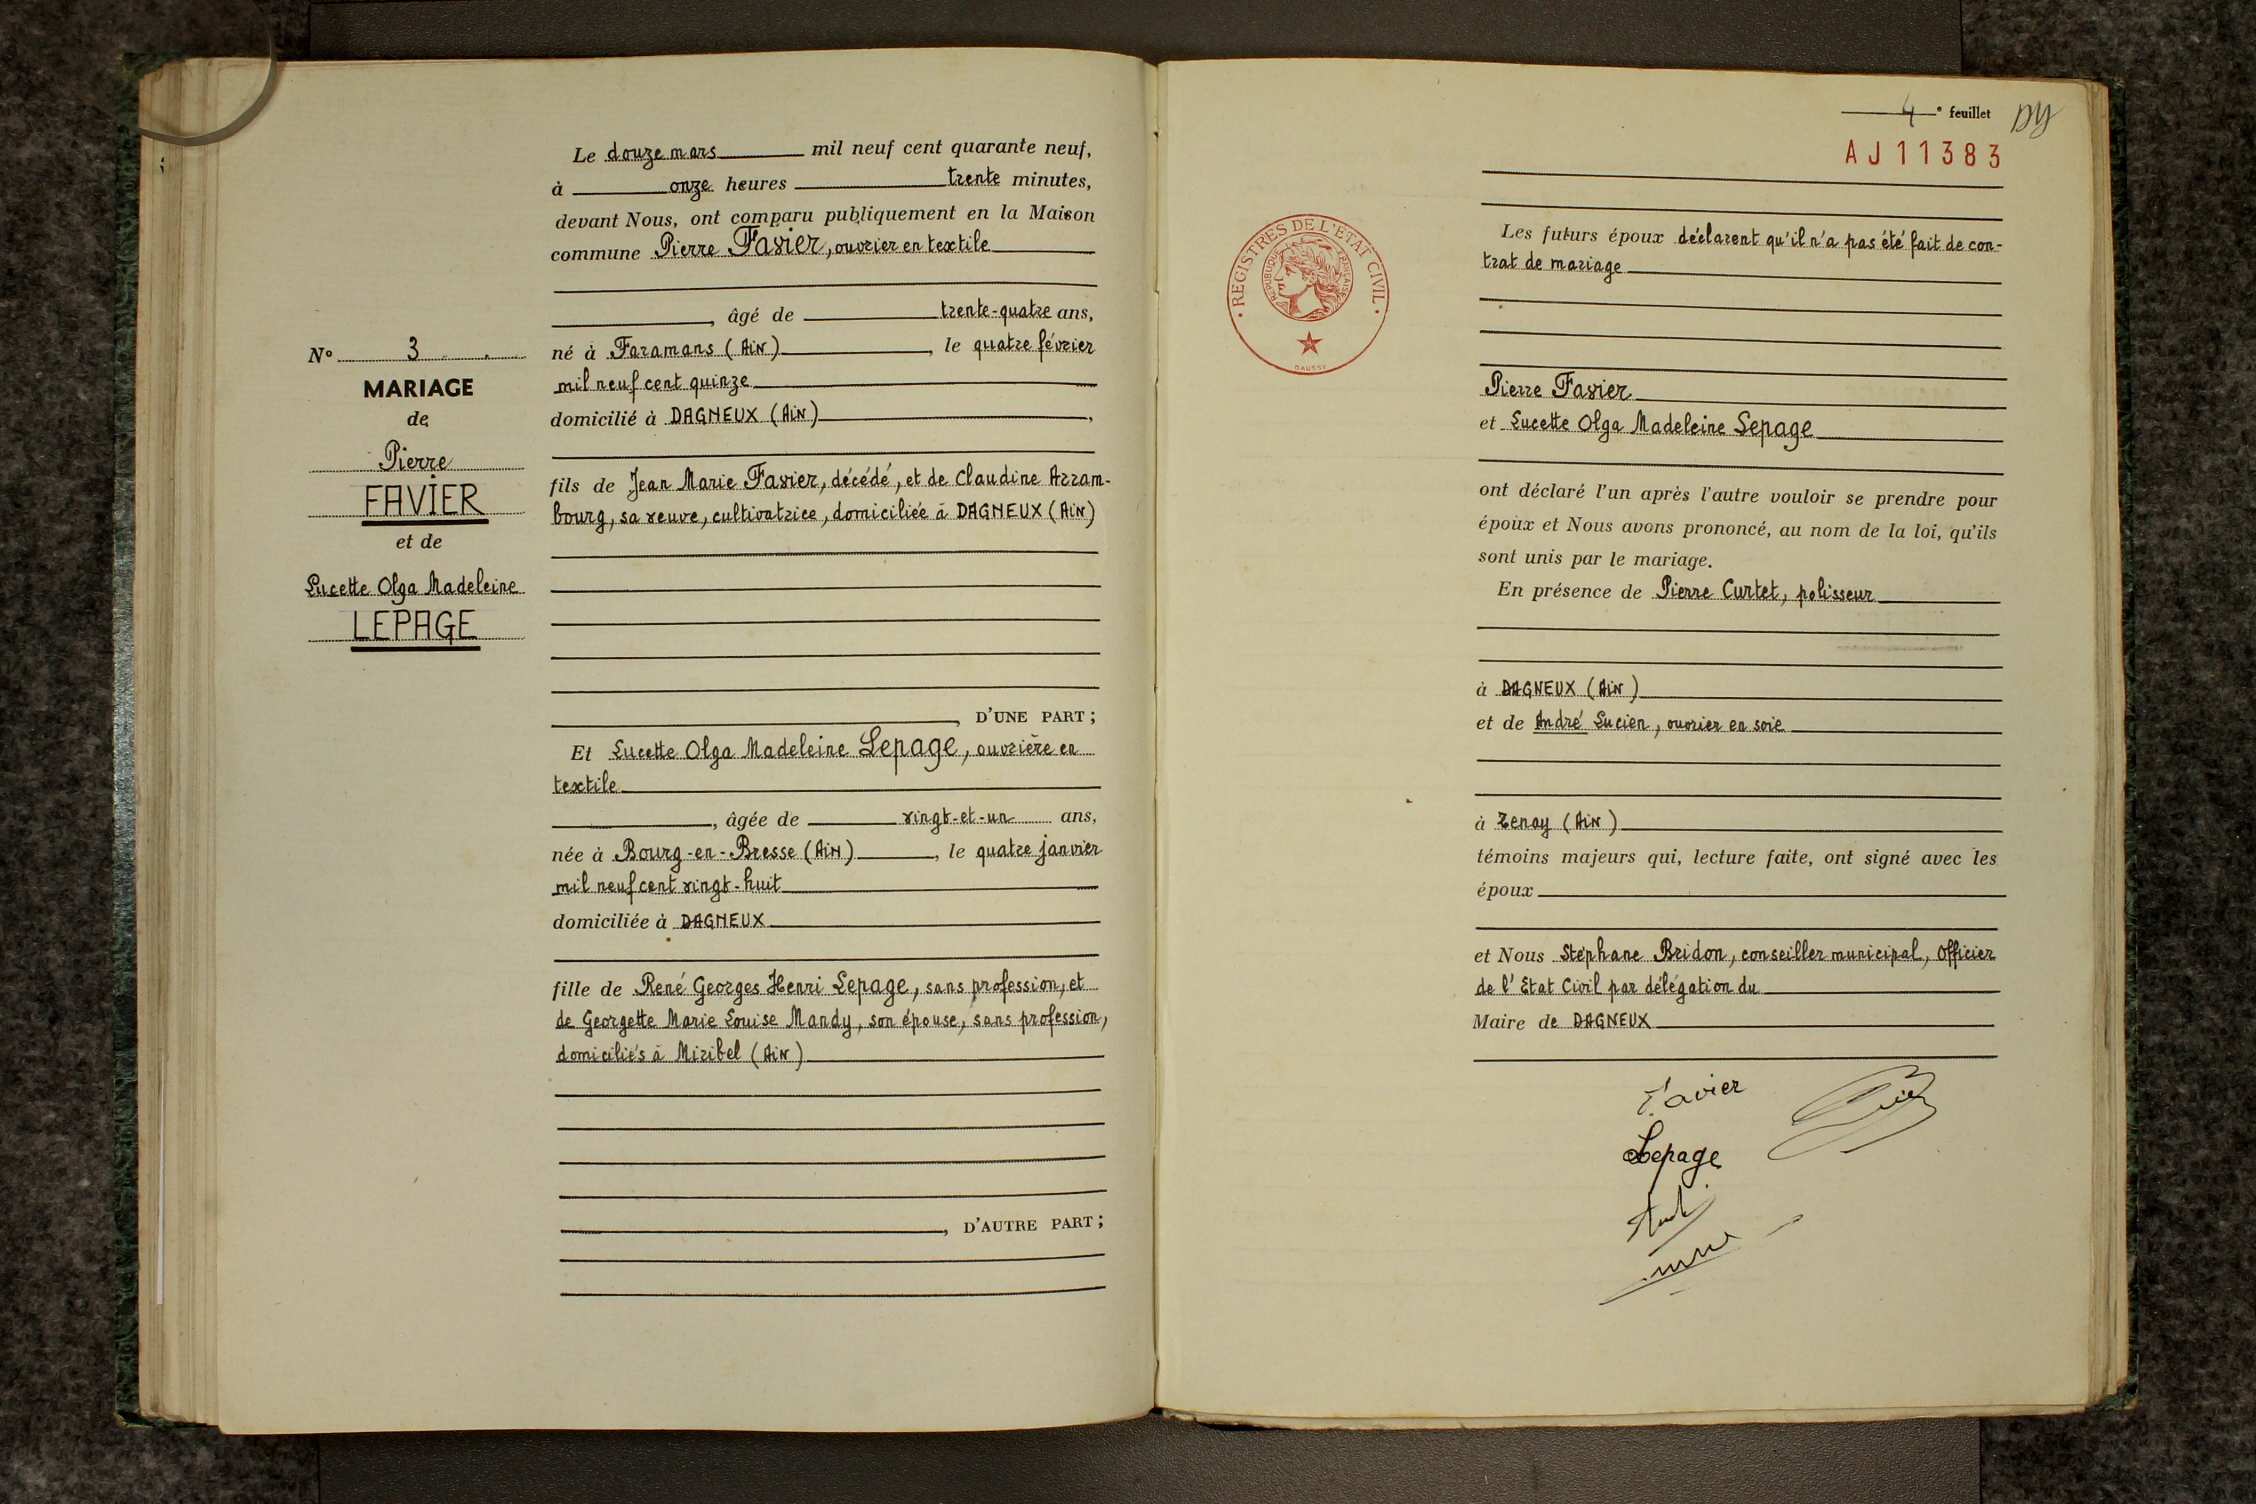 Le douze mars mil neuf cent quarante neuf,
à onze heures trente minutes,
devant Nous, ont comparu publiquement en la Maison
commune Pierre Favier, ouvrier en textile
, âgé de trente-quatre ans,
né à Faramans (AiN), le quatre février
mil neuf cent quinze
domicilié à DAGNEUX (AiN),
fils de Jean Marie Favier, décédé, et de Claudine Arram-
bourg, sa veuve, cultivatrice, domiciliée à DAGNEUX (AiN)
, D'UNE PART ;
Et Lucette Olga Madeleine Lepage, ouvrière en
textile
, âgée de vingt-et-un ans,
née à Bourg-en-Bresse (AiN), le quatre janvier
mil neuf cent vingt-huit
domiciliée à DAGNEUX
fille de René Georges Henri Lepage, sans profession, et
de Georgette Marie Louise Mandy, son épouse, sans profession,
domiciliés à Miribel (AiN)
, D'AUTRE PART ;
No 3
MARIAGE
de
Pierre
FAVIER
et de
Lucette Olga Madeleine
LEPAGE
4e feuillet
AJ11383
REGISTRES DE L'ETAT CIVIL
REPUBLIQUE FRANÇAISE
Les futurs époux déclarent qu'il n'a pas été fait de con-
trat de mariage
Pierre Favier
et Lucette Olga Madeleine Lepage
ont déclaré l'un après l'autre vouloir se prendre pour
époux et Nous avons prononcé, au nom de la loi, qu'ils
sont unis par le mariage.
En présence de Pierre Curtet, polisseur
à DAGNEUX (AiN)
et de André Lucien, ouvrier en soie
à (AiN)
témoins majeurs qui, lecture faite, ont signé avec les
époux
et Nous Stéphane Bridon, conseiller municipal, Officier
de l'Etat Civil par délégation du
Maire de DAGNEUX
Favier
Lepage